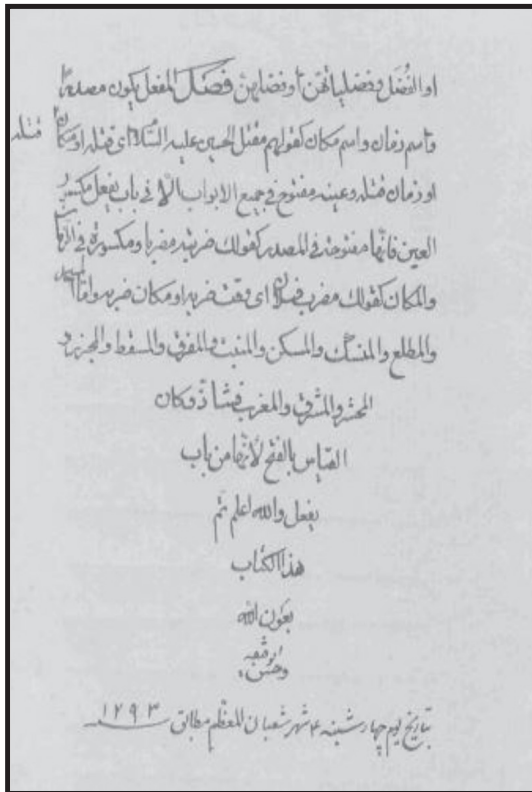 او الفُضَل وفضلياتهن او فضلهن فصل المفعل يكون مصدرا
واسم زمان واسم مكان كقولهم مقتل الحسين عليه السلام اى قتله او مكان قتله
او زمان قتله وعينه مفتوح فى جميع الابواب الا فى باب يفعل مكسور
العين فانها مفتوحة فى المصدر كقولك ضربته مضربا ومكسورة فى الزمان
والمكان كقولك مضرب فلان اى وقت ضربه او مكان ضربه واما المسجد
والمطلع والمنسك والمسكن والمنبت والمفرق والمسقط والمجزر و
المحشر والمشرق والمغرب فشاذ وكان
القياس بالفتح لأنها من باب
يفعل والله اعلم تم
هذا الكتاب
بعون الله
وحسن توفيقه
بتاريخ يوم چهارشنبه ۴ شهر شعبان المعظم مطابق ۱۲۹۳